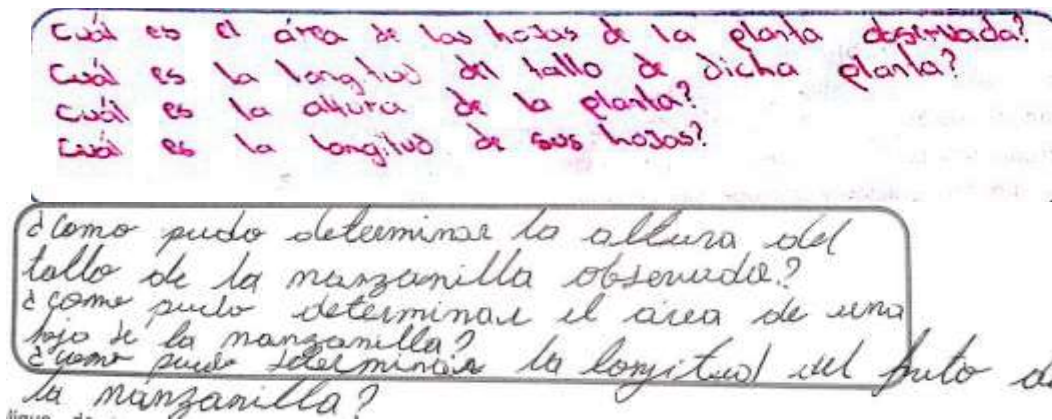 Cuál es el área de las hojas de la planta observada?
Cuál es la longitud del tallo de dicha planta?
Cuál es la altura de la planta?
Cuál es la longitud de sus hojas?
¿como pudo determinar la altura del
tallo de la manzanilla observada?
¿como pudo determinar el area de una
hoja de la manzanilla?
¿como puedo determinar la longitud del fruto de
la manzanilla?